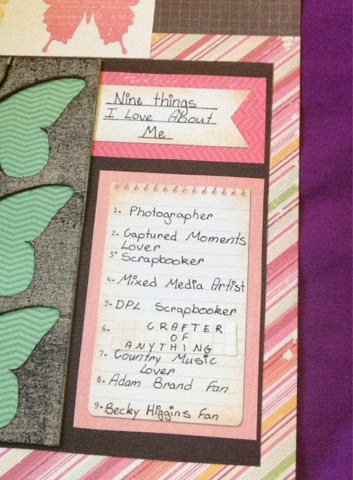 Nine things
I Love About
Me
1. Photographer
2. Captured Moments
Lover
3. Scrapbooker
4. Mixed Media Artist
5. DPL Scrapbooker
6. CRAFTER
OF
ANYTHING
7. Country Music
Lover
8. Adam Brand Fan
9. Becky Higgins Fan